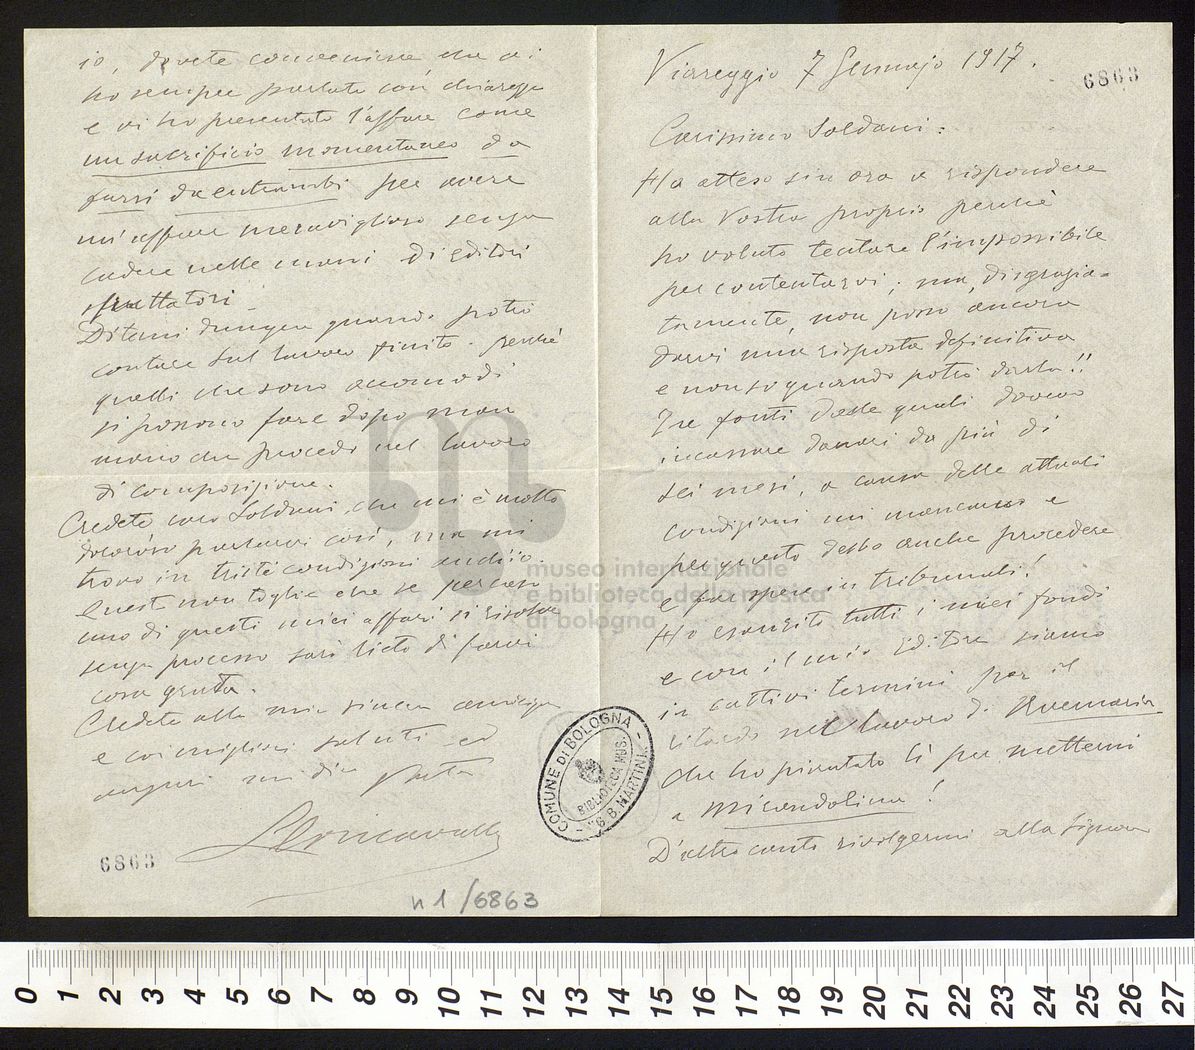 Viareggio 7 Gennajo 1917.
6863
Carissimo Soldani:
Ho atteso sin ora a rispondere
alla vostra proprio perchè
ho voluto tentare l'impossibile
per contentarvi; ma, disgrazia-
tamente, non posso ancora
darvi una risposta definitiva
e non so quando potrò darla!!
Tre fonti dalle quali dovevo
incassare danari da più di
sei mesi, a causa delle attuali
condizioni mi mancano e
per questo debbo anche procedere
e far spese in tribunali!
Ho esaurito tutti i miei fondi
e con il mio Editore siamo
in cattivi termini per il
ritardo nel lavoro di Avemaria
che ho piantato lì per mettermi
a Mirandolina!
D'altro canto rivolgermi alla Signora
io, dovete convenirne, che vi
ho sempre parlato con chiarezza
e vi ho presentato l'affare come
un sacrificio momentaneo da
farsi da entrambi per avere
un'affare meraviglioso senza
cadere nelle mani di Editori
sfruttatori
Ditemi dunque quando potrò
contare sul lavoro finito. perchè
quelli che sono accomodi
si possono fare dopo man
mano che procedo nel lavoro
di composizione.
Credete caro Soldani, che mi è molto
doloroso parlarvi così, ma mi
trovo in tristi condizioni anch'io.
Questo non toglie che se per caso
uno di questi miei affari si risolve
senza processo sarò lieto di farvi
cosa grata.
Credete alla mia sincera amicizia
e coi migliori saluti ed
auguri mi dico Vostro
RLeoncavallo
6863
n 1/6863
museo internazionale
e biblioteca della musica
di bologna
COMUNE DI BOLOGNA
BIBLIOTECA MUS.
"G. B. MARTINI"
0 1 2 3 4 5 6 7 8 9 10 11 12 13 14 15 16 17 18 19 20 21 22 23 24 25 26 27